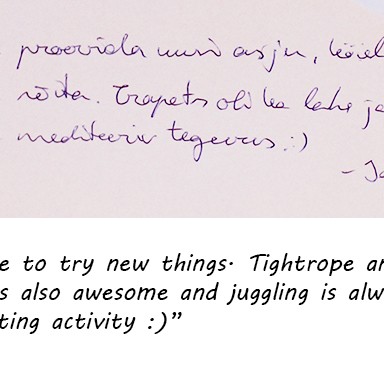 proovida uusi asju, köiel
sõita. Trapets oli ka lahe ja
mediteeriv tegevus :)
- Ja
e to try new things. Tightrope an
s also awesome and juggling is alw
ting activity :)”